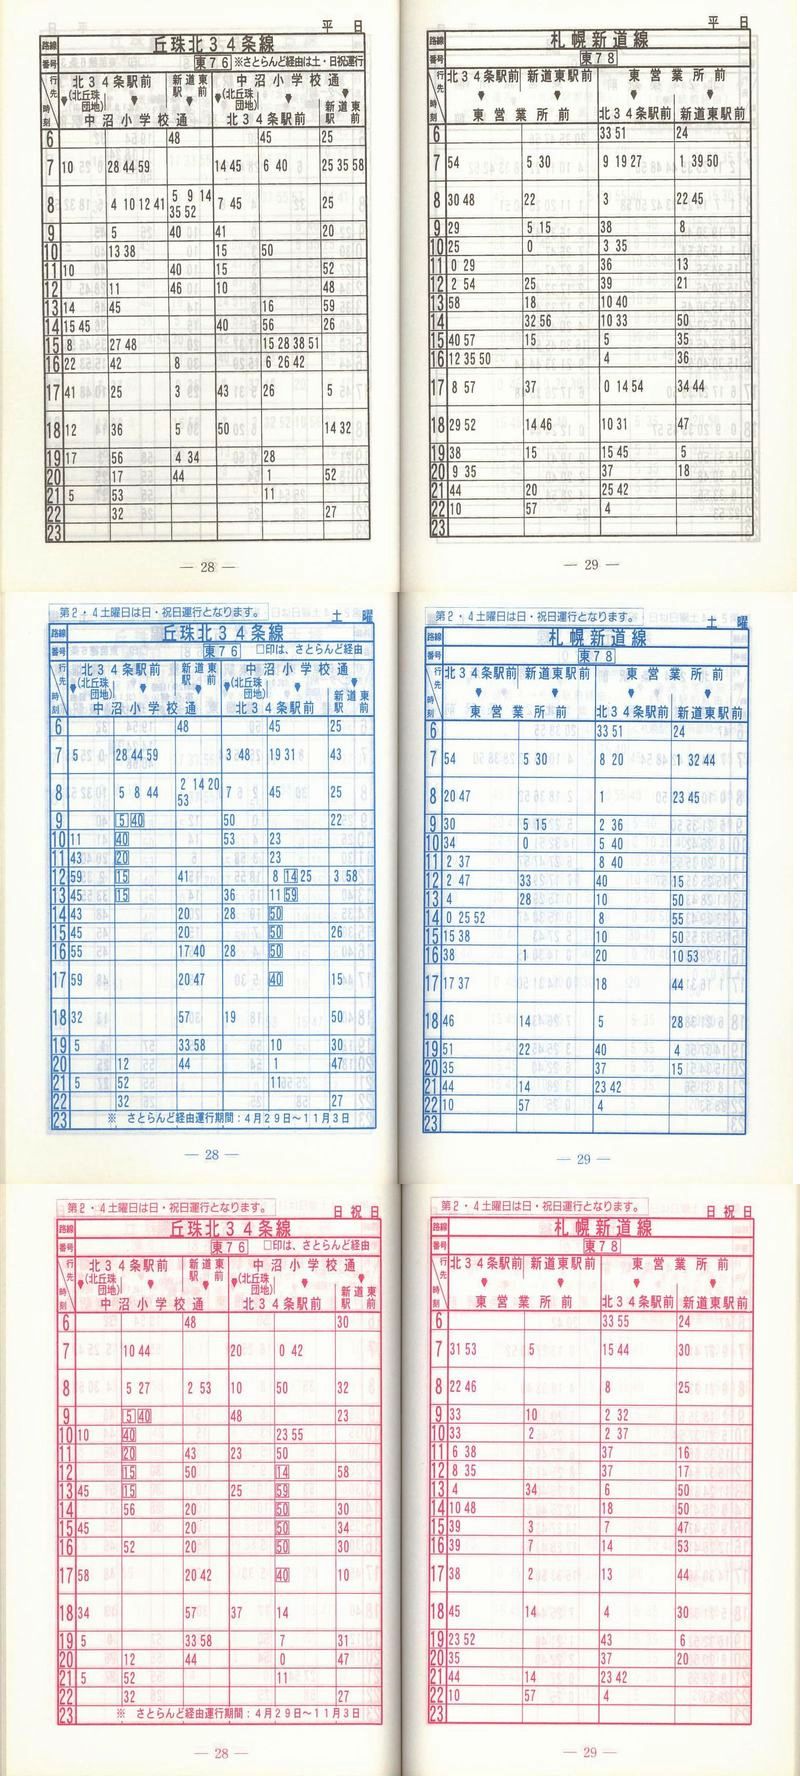 平 日
路線 丘珠北34条線
番号 東76 ※さとらんど経由は土・日祝運行
行先 北34条駅前 新道東駅前 中沼小学校通
(北丘珠団地) (北丘珠団地) 新道東駅前
時刻 中沼小学校通 北34条駅前
6 48 45 25
7 10 28 44 59 14 45 6 40 25 35 58
8 4 10 12 41 5 9 14 35 52 7 45 25
9 5 40 41 20
10 13 38 15 50
11 10 40 15 52
12 11 46 10 48
13 14 45 16 59
14 15 45 40 56 26
15 8 27 48 15 28 38 51
16 22 42 8 6 26 42
17 41 25 3 43 26 5
18 12 36 5 50 14 32
19 17 56 4 34 28
20 17 44 1 52
21 5 53 11
22 32 27
23
— 28 —
平 日
路線 札幌新道線
番号 東78
行先 北34条駅前 新道東駅前 東営業所前
時刻 東営業所前 北34条駅前 新道東駅前
6 33 51 24
7 54 5 30 9 19 27 1 39 50
8 30 48 22 3 22 45
9 29 5 15 38 8
10 25 0 3 35
11 0 29 36 13
12 2 54 25 39 21
13 58 18 10 40
14 32 56 10 33 50
15 40 57 15 5 35
16 12 35 50 4 36
17 8 57 37 0 14 54 34 44
18 29 52 14 46 10 31 47
19 38 15 15 45 5
20 9 35 37 18
21 44 20 25 42
22 10 57 4
23
— 29 —
第2・4土曜日は日・祝日運行となります。 土 曜
路線 丘珠北34条線
番号 東76 □印は、さとらんど経由
行先 北34条駅前 新道東駅前 中沼小学校通
(北丘珠団地) (北丘珠団地) 新道東駅前
時刻 中沼小学校通 北34条駅前
6 48 45 25
7 5 28 44 59 3 48 19 31 43
8 5 8 44 2 14 20 53 7 45 25
9 5 40 50 22
10 11 40 53 23
11 43 20 23
12 59 15 41 8 14 25 3 58
13 45 15 36 11 59
14 43 20 28 50
15 45 20 50 26
16 55 17 40 28 50
17 59 20 47 40 15
18 32 57 19 50
19 5 33 58 10 30
20 12 44 1 47
21 5 52 11
22 32 27
23 ※ さとらんど経由運行期間：4月29日～11月3日
— 28 —
第2・4土曜日は日・祝日運行となります。 土 曜
路線 札幌新道線
番号 東78
行先 北34条駅前 新道東駅前 東営業所前
時刻 東営業所前 北34条駅前 新道東駅前
6 33 51 24
7 54 5 30 8 20 1 32 44
8 20 47 1 23 45
9 30 5 15 2 36
10 34 0 5 40
11 2 37 8 40
12 2 47 33 40 15
13 4 28 10 50
14 0 25 52 8 55
15 15 38 10 50
16 38 1 20 10 53
17 17 37 18 44
18 46 14 5 28
19 51 22 40 4
20 35 37 15
21 44 14 23 42
22 10 57 4
23
— 29 —
第2・4土曜日は日・祝日運行となります。 日 祝 日
路線 丘珠北34条線
番号 東76 □印は、さとらんど経由
行先 北34条駅前 新道東駅前 中沼小学校通
(北丘珠団地) (北丘珠団地) 新道東駅前
時刻 中沼小学校通 北34条駅前
6 48 30
7 10 44 20 0 42
8 5 27 2 53 10 50 32
9 5 40 48 23
10 10 40 23 55
11 20 43 23 50
12 15 50 14 58
13 45 15 25 59
14 56 20 50 30
15 45 20 50 34
16 52 20 50 30
17 58 20 42 40 10
18 34 57 37 14
19 5 33 58 7 31
20 12 44 0 47
21 5 52 11
22 32 27
23 ※ さとらんど経由運行期間：4月29日～11月3日
— 28 —
第2・4土曜日は日・祝日運行となります。 日 祝 日
路線 札幌新道線
番号 東78
行先 北34条駅前 新道東駅前 東営業所前
時刻 東営業所前 北34条駅前 新道東駅前
6 33 55 24
7 31 53 5 15 44 30
8 22 46 8 25
9 33 10 2 32
10 33 2 2 37
11 6 38 37 16
12 8 35 37 17
13 4 34 6 50
14 10 48 18 50
15 39 3 7 47
16 39 7 14 53
17 38 2 13 44
18 45 14 4 30
19 23 52 43 6
20 35 37 20
21 44 14 23 42
22 10 57 4
23
— 29 —